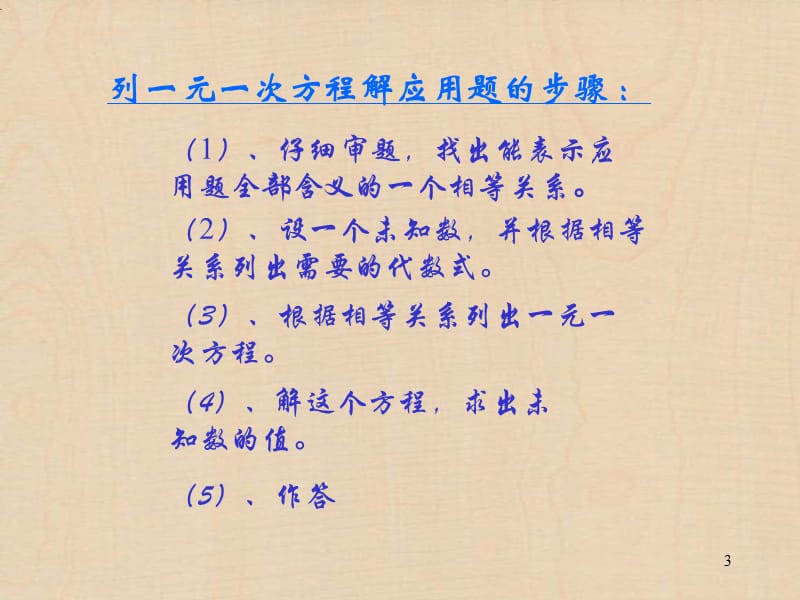 列一元一次方程解应用题的步骤：
（1）、仔细审题，找出能表示应
用题全部含义的一个相等关系。
（2）、设一个未知数，并根据相等
关系列出需要的代数式。
（3）、根据相等关系列出一元一
次方程。
（4）、解这个方程，求出未
知数的值。
（5）、作答
3